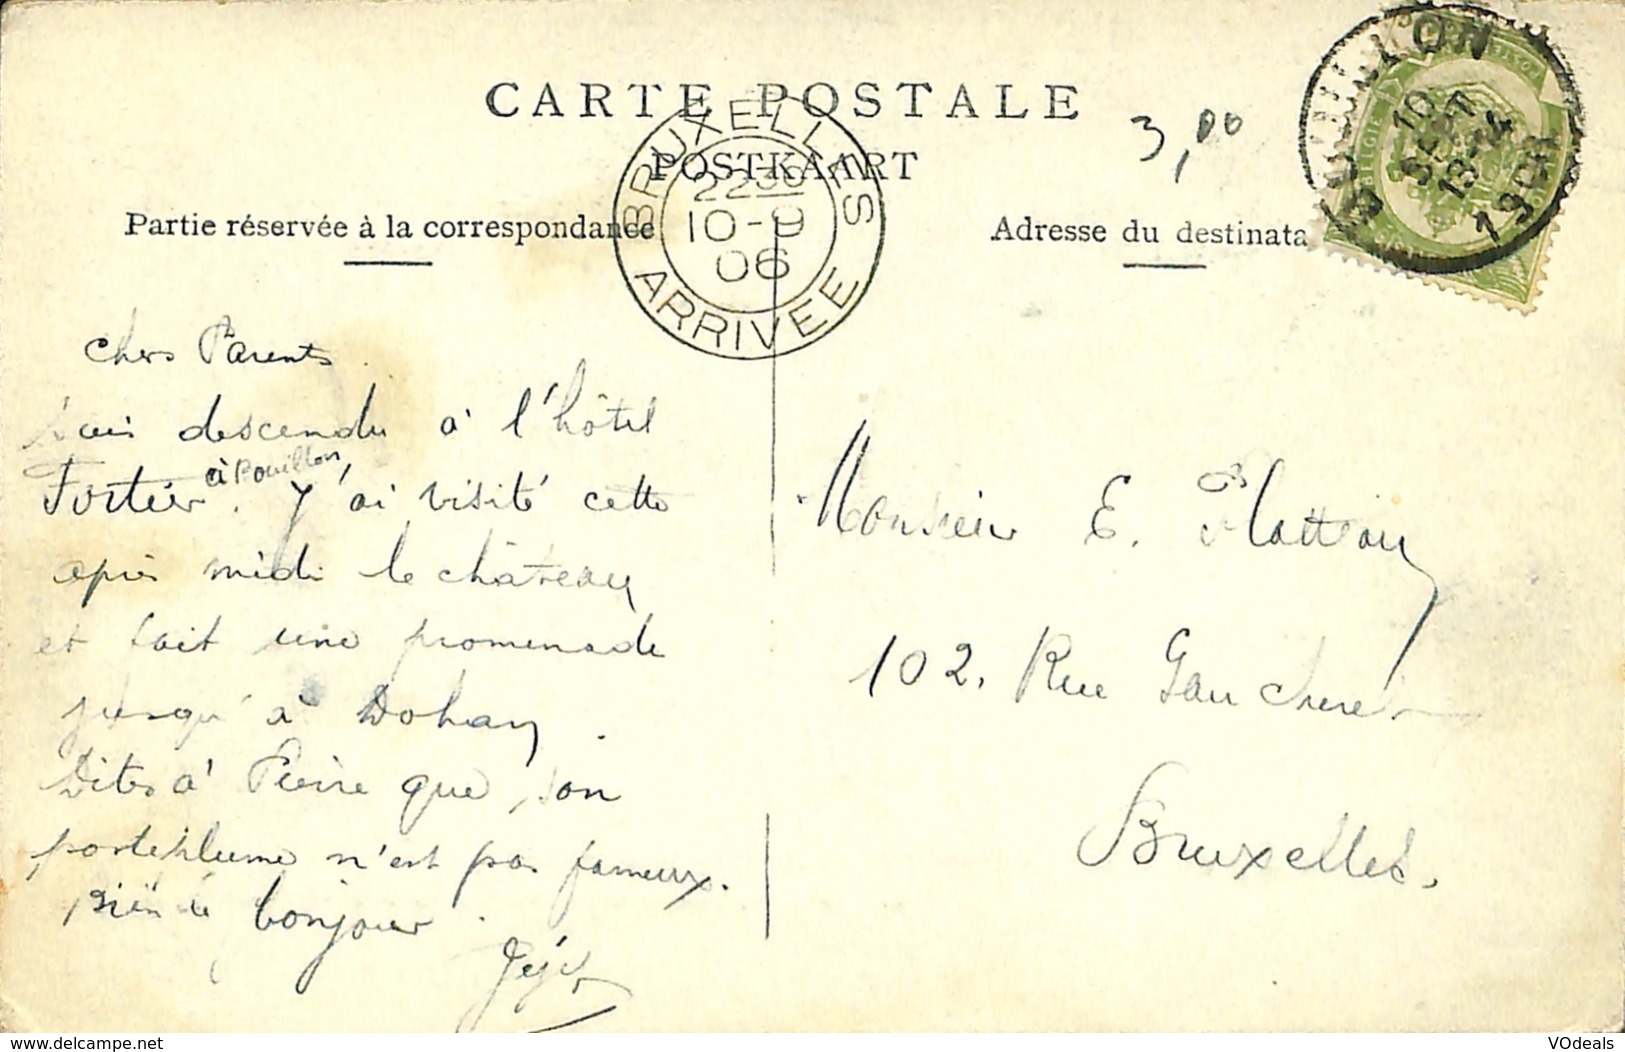 CARTE POSTALE
POSTKAART
3,00
Partie réservée à la correspondance
Adresse du destinata
BRUXELLES
22 30
10-9
06
ARRIVEE
BOUILLON
10
SEPT
13-14
1906
chers Parents
Suis descendu à l'hôtel
Fortier à Bouillon. J'ai visité cette
après midi le château
et fait une promenade
jusqu'à Dohan.
Dites à Pierre que son
porteplume n'est pas fameux.
Bien le bonjour.
Monsieur E. Platteau
102. Rue Gaucheret
Bruxelles.
www.delcampe.net
VOdeals